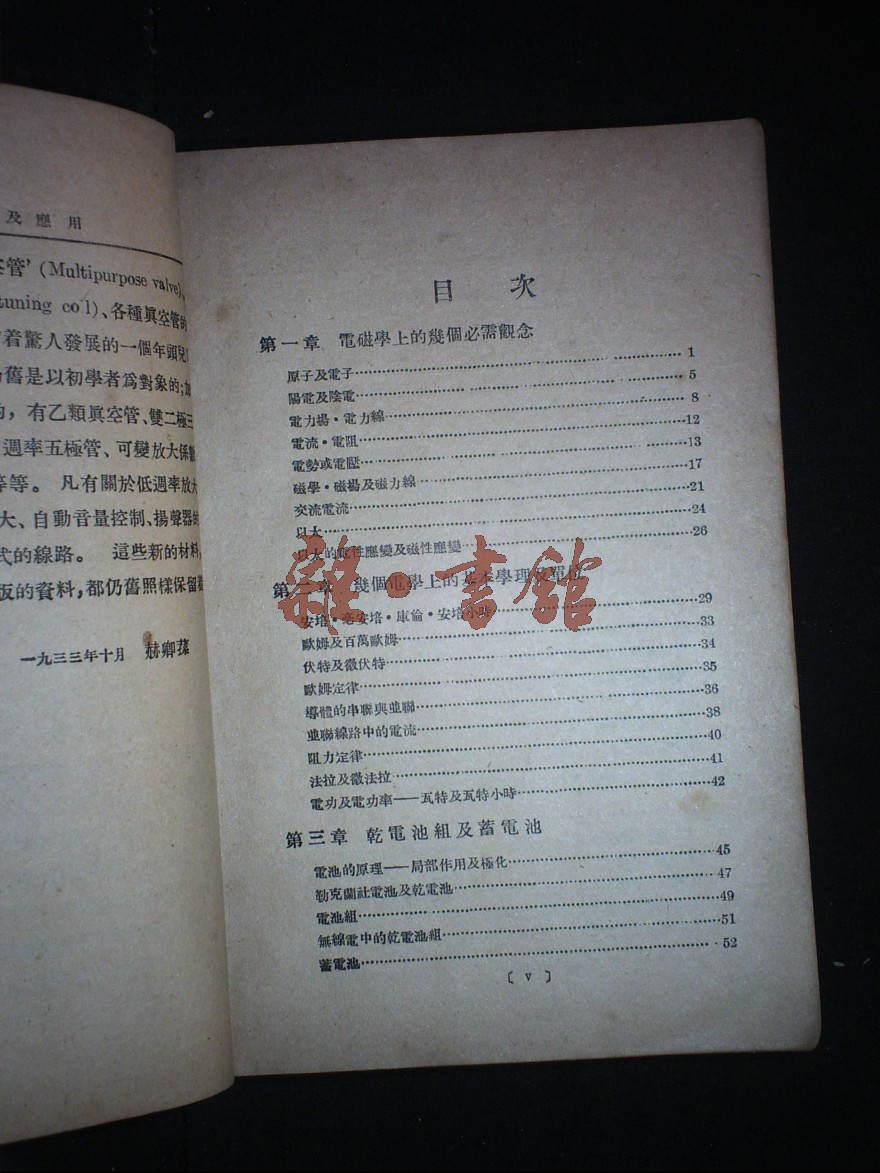 及應用
空管' (Multipurpose valve)、
tuning co l)、各種眞空管的
着驚人發展的一個年頭兒
舊是以初學者爲對象的;加
的, 有乙類眞空管、雙二極三
週率五極管、可變放大係數
等等。 凡有關於低週率放大
大、自動音量控制、揚聲器的
式的線路。 這些新的材料,
版的資料,都仍舊照樣保留着
一九三三年十月 赫卿蓀
目 次
第一章 電磁學上的幾個必需觀念
原子及電子 1
陽電及陰電 5
電力場·電力線 8
電流·電阻 12
電勢或電壓 13
磁學·磁場及磁力線 17
交流電流 21
以太 24
以太的電性應變及磁性應變 26
第二章 幾個電學上的基本學理及單位
安培·毫安培·庫倫·安培小時 29
歐姆及百萬歐姆 33
伏特及微伏特 34
歐姆定律 35
導體的串聯與並聯 36
並聯線路中的電流 38
阻力定律 40
法拉及微法拉 41
電功及電功率——瓦特及瓦特小時 42
第三章 乾電池組及蓄電池
電池的原理——局部作用及極化 45
勒克蘭社電池及乾電池 47
電池組 49
無線電中的乾電池組 51
蓄電池 52
〔 v 〕
雜·書館